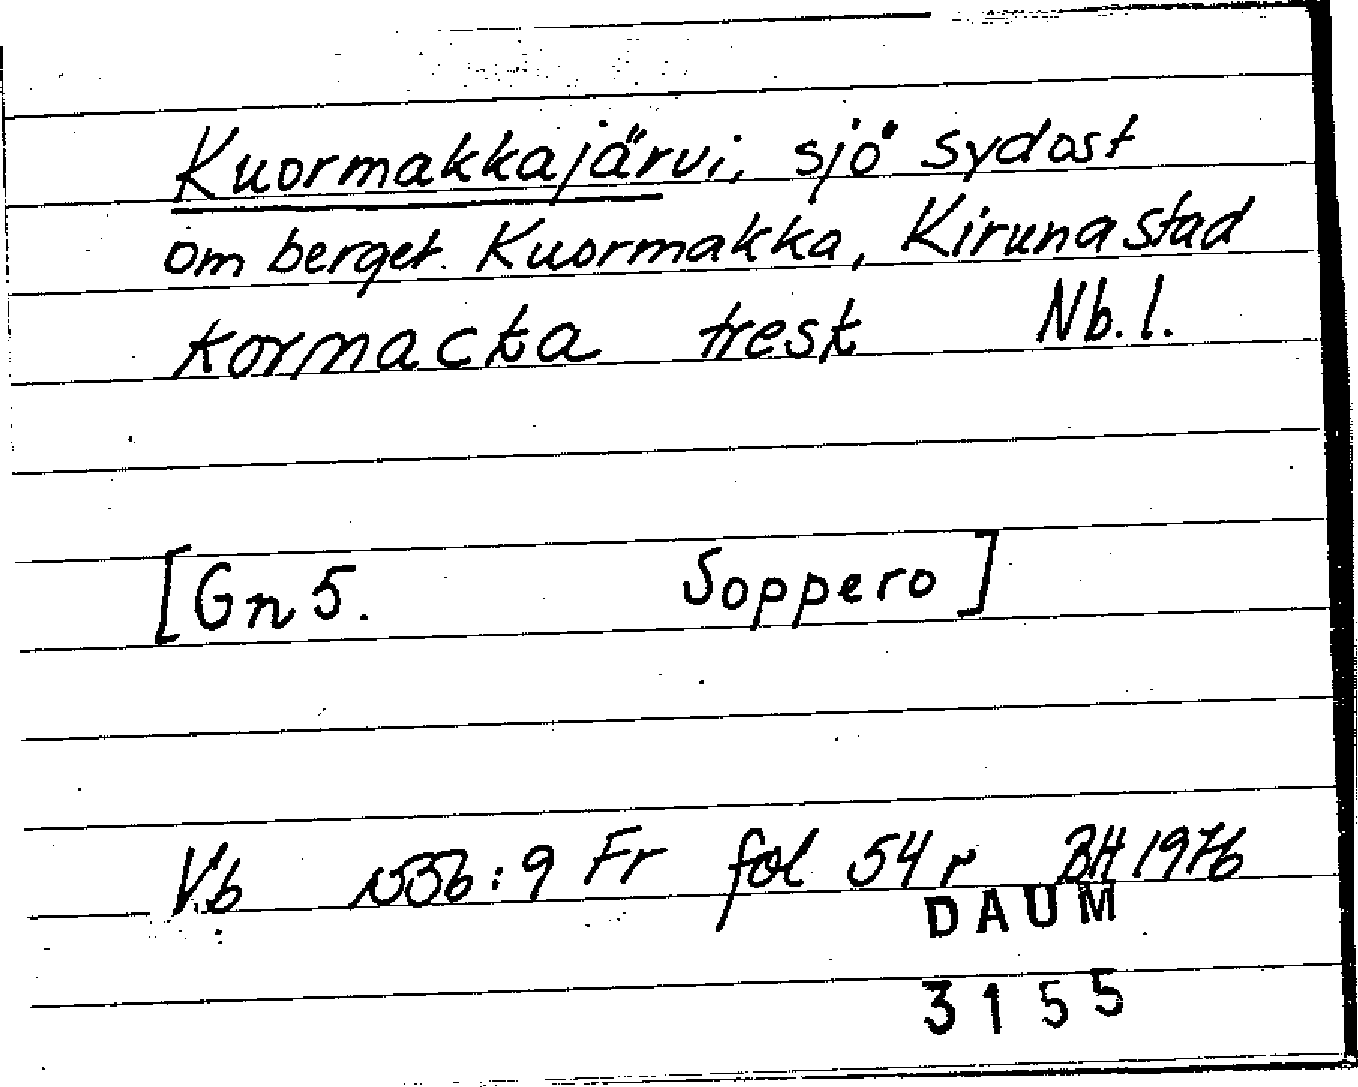 Kuormakkajärvi, sjö sydost
om berget Kuormakka, Kiruna stad
Kormacka tresk Nb. l.
[Gn 5. Soppero]
Vb 1556:9 Fr fol 54 r BH 1976
DAUM
3155